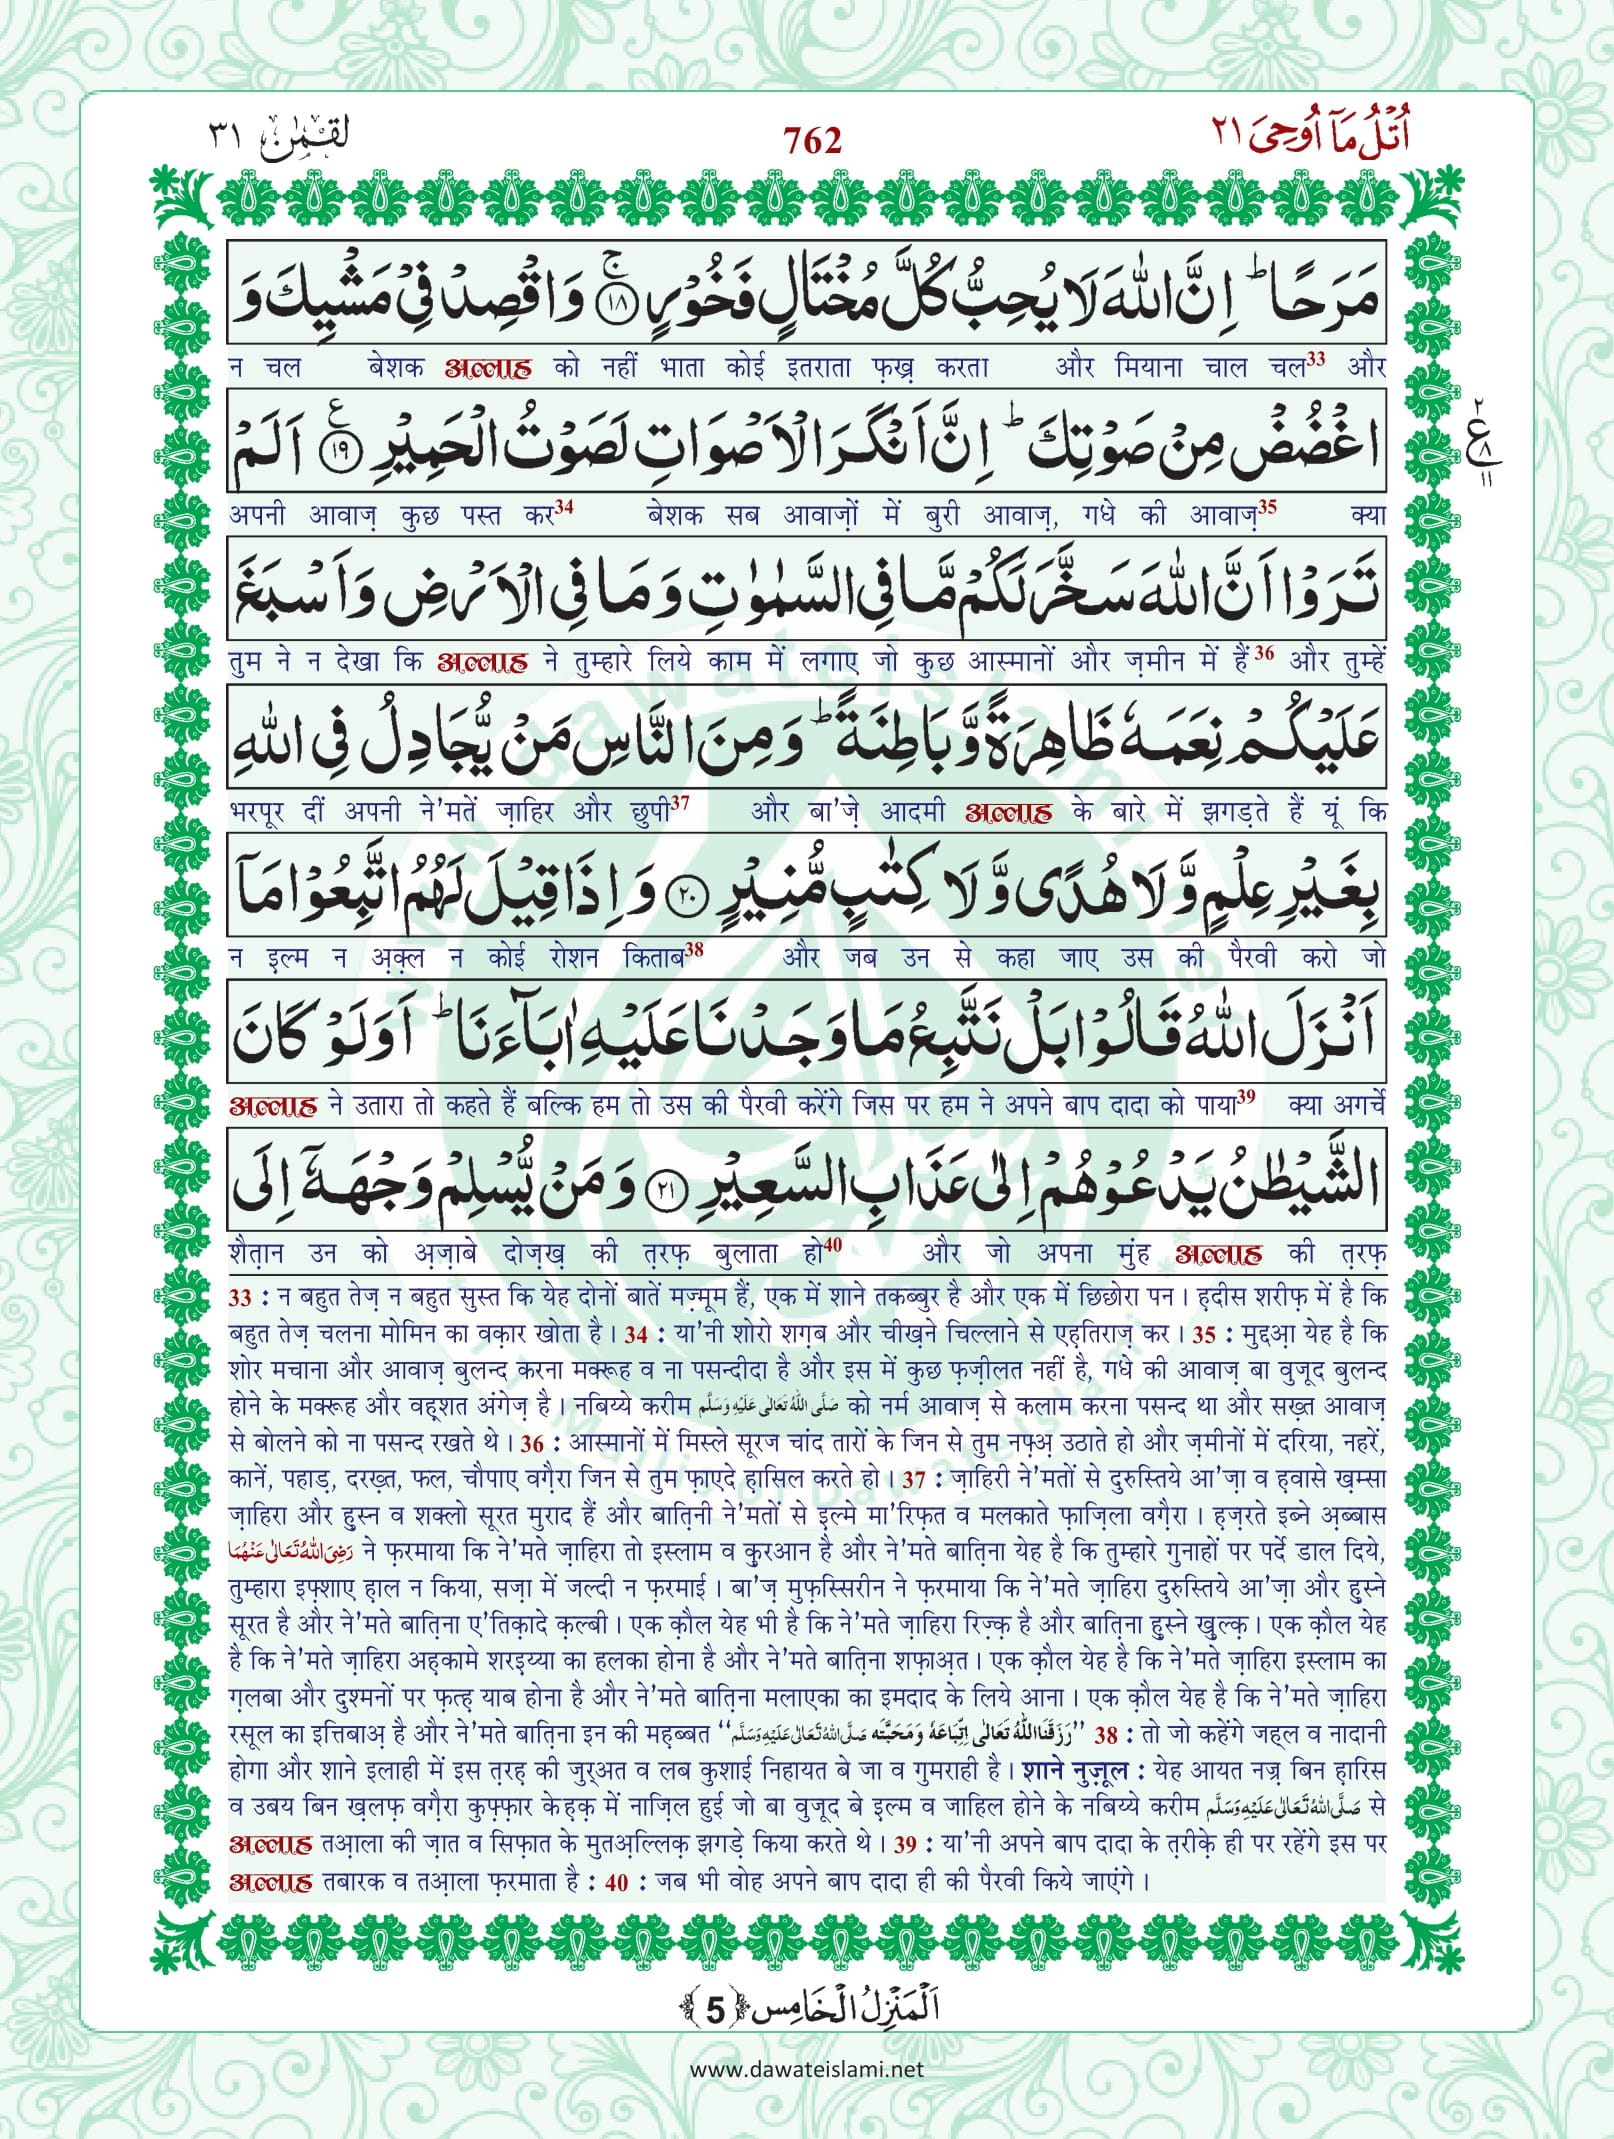 لقمٰن ٣١
762
اُتْلُ مَاۤ اُوْحِیَ ٢١
مَرَحًا ؕ اِنَّ اللّٰهَ لَا یُحِبُّ كُلَّ مُخْتَالٍ فَخُوْرٍ ۚ﴿۱۸﴾ وَ اقْصِدْ فِیْ مَشْیِكَ وَ
न चल बेशक अल्लाह को नहीं भाता कोई इतराता फ़ख़्र करता और मियाना चाल चल33 और
اغْضُضْ مِنْ صَوْتِكَ ؕ اِنَّ اَنْكَرَ الْاَصْوَاتِ لَصَوْتُ الْحَمِیْرِ ﴿۱۹﴾ۧ اَلَمْ
٢ ع ٨ ١١
अपनी आवाज़ कुछ पस्त कर34 बेशक सब आवाज़ों में बुरी आवाज़, गधे की आवाज़35 क्या
تَرَوْا اَنَّ اللّٰهَ سَخَّرَ لَكُمْ مَّا فِی السَّمٰوٰتِ وَ مَا فِی الْاَرْضِ وَ اَسْبَغَ
तुम ने न देखा कि अल्लाह ने तुम्हारे लिये काम में लगाए जो कुछ आस्मानों और ज़मीन में हैं36 और तुम्हें
عَلَیْكُمْ نِعَمَهٗ ظَاهِرَةً وَّ بَاطِنَةً ؕ وَ مِنَ النَّاسِ مَنْ یُّجَادِلُ فِی اللّٰهِ
भरपूर दीं अपनी ने'मतें ज़ाहिर और छुपी37 और बा'ज़े आदमी अल्लाह के बारे में झगड़ते हैं यूं कि
بِغَیْرِ عِلْمٍ وَّ لَا هُدًی وَّ لَا كِتٰبٍ مُّنِیْرٍ ﴿۲۰﴾ وَ اِذَا قِیْلَ لَهُمُ اتَّبِعُوْا مَاۤ
न इल्म न अ़क़्ल न कोई रोशन किताब38 और जब उन से कहा जाए उस की पैरवी करो जो
اَنْزَلَ اللّٰهُ قَالُوْا بَلْ نَتَّبِعُ مَا وَجَدْنَا عَلَیْهِ اٰبَآءَنَا ؕ اَوَ لَوْ كَانَ
अल्लाह ने उतारा तो कहते हैं बल्कि हम तो उस की पैरवी करेंगे जिस पर हम ने अपने बाप दादा को पाया39 क्या अगर्चे
الشَّیْطٰنُ یَدْعُوْهُمْ اِلٰی عَذَابِ السَّعِیْرِ ﴿۲۱﴾ وَ مَنْ یُّسْلِمْ وَجْهَهٗۤ اِلَی
शैत़ान उन को अ़ज़ाबे दोज़ख़ की त़रफ़ बुलाता हो40 और जो अपना मुंह अल्लाह की त़रफ़
33 : न बहुत तेज़ न बहुत सुस्त कि येह दोनों बातें मज़्मूम हैं, एक में शाने तकब्बुर है और एक में छिछोरा पन । ह़दीस शरीफ़ में है कि
बहुत तेज़ चलना मोमिन का वक़ार खोता है । 34 : या'नी शोरो शग़ब और चीख़ने चिल्लाने से एह़तिराज़ कर । 35 : मुद्दआ़ येह है कि
शोर मचाना और आवाज़ बुलन्द करना मक्रूह व ना पसन्दीदा है और इस में कुछ फ़ज़ीलत नहीं है, गधे की आवाज़ बा वुजूद बुलन्द
होने के मक्रूह और वह़्शत अंगेज़ है । नबिय्ये करीम صَلَّی اللّٰهُ تَعَالٰی عَلَیْهِ وَسَلَّم को नर्म आवाज़ से कलाम करना पसन्द था और सख़्त आवाज़
से बोलने को ना पसन्द रखते थे । 36 : आस्मानों में मिस्ले सूरज चांद तारों के जिन से तुम नफ़्अ़ उठाते हो और ज़मीनों में दरिया, नहरें,
कानें, पहाड़, दरख़्त, फल, चौपाए वग़ैरा जिन से तुम फ़ाएदे ह़ासिल करते हो । 37 : ज़ाहिरी ने'मतों से दुरुस्तिये आ'ज़ा व ह़वासे ख़म्सा
ज़ाहिरा और हुस्न व शक्लो सूरत मुराद हैं और बात़िनी ने'मतों से इ़ल्मे मा'रिफ़त व मलकाते फ़ाज़िला वग़ैरा । ह़ज़रते इब्ने अ़ब्बास
رَضِیَ اللّٰهُ تَعَالٰی عَنْهُمَا ने फ़रमाया कि ने'मते ज़ाहिरा तो इस्लाम व क़ुरआन है और ने'मते बात़िना येह है कि तुम्हारे गुनाहों पर पर्दे डाल दिये,
तुम्हारा इफ़्शाए ह़ाल न किया, सज़ा में जल्दी न फ़रमाई । बा'ज़ मुफ़स्सिरीन ने फ़रमाया कि ने'मते ज़ाहिरा दुरुस्तिये आ'ज़ा और ह़ुस्ने
सूरत है और ने'मते बात़िना ए'तिक़ादे क़ल्बी । एक क़ौल येह भी है कि ने'मते ज़ाहिरा रिज़्क़ है और बात़िना ह़ुस्ने ख़ुल्क़ । एक क़ौल येह
है कि ने'मते ज़ाहिरा अह़कामे शरइय्या का हलका होना है और ने'मते बात़िना शफ़ाअ़त । एक क़ौल येह है कि ने'मते ज़ाहिरा इस्लाम का
ग़लबा और दुश्मनों पर फ़त्ह़ याब होना है और ने'मते बात़िना मलाएका का इमदाद के लिये आना । एक क़ौल येह है कि ने'मते ज़ाहिरा
रसूल का इत्तिबाअ़ है और ने'मते बात़िना इन की मह़ब्बत “رَزَقَنَا اللّٰهُ تَعَالٰی اِتِّبَاعَهٗ وَمَحَبَّتَه صَلَّی اللّٰهُ تَعَالٰی عَلَیْهِ وَسَلَّم” 38 : तो जो कहेंगे जह्ल व नादानी
होगा और शाने इलाही में इस त़रह़ की जुर्अत व लब कुशाई निहायत बे जा व गुमराही है । शाने नुज़ूल : येह आयत नज़्र बिन ह़ारिस
व उबय बिन ख़लफ़ वग़ैरा कुफ़्फ़ार के ह़क़ में नाज़िल हुई जो बा वुजूद बे इल्म व जाहिल होने के नबिय्ये करीम صَلَّی اللّٰهُ تَعَالٰی عَلَیْهِ وَسَلَّم से
अल्लाह तआ़ला की ज़ात व सिफ़ात के मुतअ़ल्लिक़ झगड़े किया करते थे । 39 : या'नी अपने बाप दादा के त़रीक़े ही पर रहेंगे इस पर
अल्लाह तबारक व तआ़ला फ़रमाता है : 40 : जब भी वोह अपने बाप दादा ही की पैरवी किये जाएंगे ।
اَلْمَنْزِلُ الْخَامِس ﴿5﴾
www.dawateislami.net